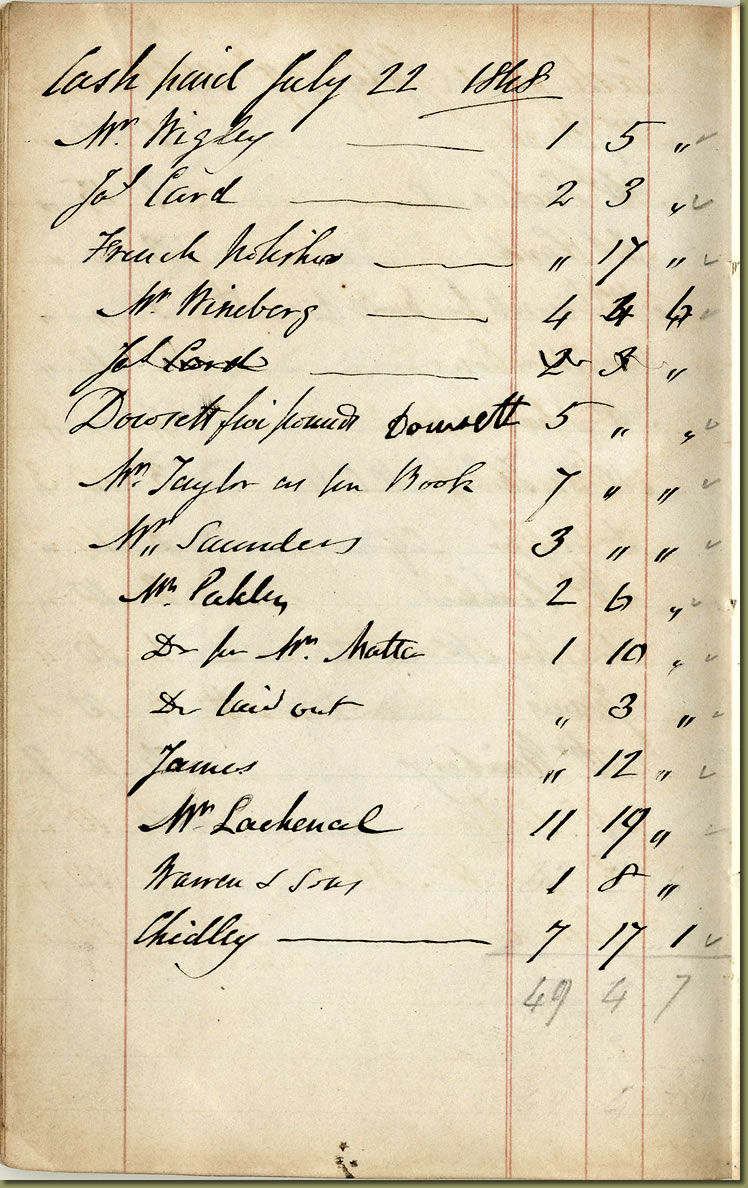 Cash paid July 22 1848
Mr. Wigley 1 5 "
Jos Card 2 3 "
French polisher " 17 "
Mr. Wineberg 4 4 6
Jos Card 2 3 "
Dowsett five pounds Dowsett 5 " "
Mr. Taylor as per Book 7 " "
Mr. Saunders 3 " "
Mr. 2 6 "
Do for Mr. 1 10 "
Do laid out " 3 "
James " 12 "
Mr Lachenal 11 19 "
Warren & Sons 1 8 "
Chidley 7 17 1
49 4 7